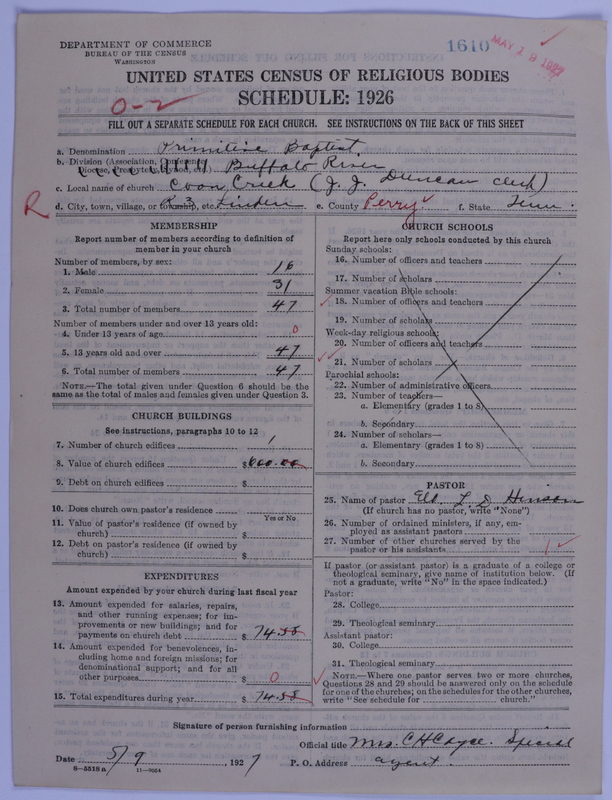 DEPARTMENT OF COMMERCE
BUREAU OF THE CENSUS
WASHINGTON
1610
MAY 18 1927
UNITED STATES CENSUS OF RELIGIOUS BODIES
SCHEDULE: 1926
0-2
FILL OUT A SEPARATE SCHEDULE FOR EACH CHURCH. SEE INSTRUCTIONS ON THE BACK OF THIS SHEET
a. Denomination Primitive Baptist
b. Division (Association, Conference, Diocese, Presbytery, Synod, etc.) Buffalo River
c. Local name of church Coon Creek (J. J. Duncan clerk)
R
d. City, town, village, or township, etc. R 3 Linden e. County Perry f. State Tenn.
MEMBERSHIP
Report number of members according to definition of
member in your church
Number of members, by sex:
1. Male 16
2. Female 31
3. Total number of members 47
Number of members under and over 13 years old:
4. Under 13 years of age 0
5. 13 years old and over 47
6. Total number of members 47
NOTE.—The total given under Question 6 should be the
same as the total of males and females given under Question 3.
CHURCH BUILDINGS
See instructions, paragraphs 10 to 12
7. Number of church edifices 1
8. Value of church edifices $600.00
9. Debt on church edifices $
10. Does church own pastor's residence
Yes or No
11. Value of pastor's residence (if owned by
church) $
12. Debt on pastor's residence (if owned by
church) $
EXPENDITURES
Amount expended by your church during last fiscal year
13. Amount expended for salaries, repairs,
and other running expenses; for im-
provements or new buildings; and for
payments on church debt $ 74.55
14. Amount expended for benevolences, in-
cluding home and foreign missions; for
denominational support; and for all
other purposes $ 0
15. Total expenditures during year $ 74.55
CHURCH SCHOOLS
Report here only schools conducted by this church
Sunday schools:
16. Number of officers and teachers
17. Number of scholars
Summer vacation Bible schools:
18. Number of officers and teachers
19. Number of scholars
Week-day religious schools:
20. Number of officers and teachers
21. Number of scholars
Parochial schools:
22. Number of administrative officers
23. Number of teachers—
a. Elementary (grades 1 to 8)
b. Secondary
24. Number of scholars—
a. Elementary (grades 1 to 8)
b. Secondary
PASTOR
25. Name of pastor Eld. L D Hinson
(If church has no pastor, write "None")
26. Number of ordained ministers, if any, em-
ployed as assistant pastors
27. Number of other churches served by the
pastor or his assistants 1
If pastor (or assistant pastor) is a graduate of a college or
theological seminary, give name of institution below. (If
not a graduate, write "No" in the space indicated.)
Pastor:
28. College
29. Theological seminary
Assistant pastor:
30. College
31. Theological seminary
NOTE.—Where one pastor serves two or more churches,
Questions 28 and 29 should be answered only on the schedule
for one of the churches; on the schedules for the other churches,
write "See schedule for church."
Signature of person furnishing information
Official title Mrs. C H Cayce. Special
Date 5/9, 1927 P. O. Address agent.
8-5518a 11-9054